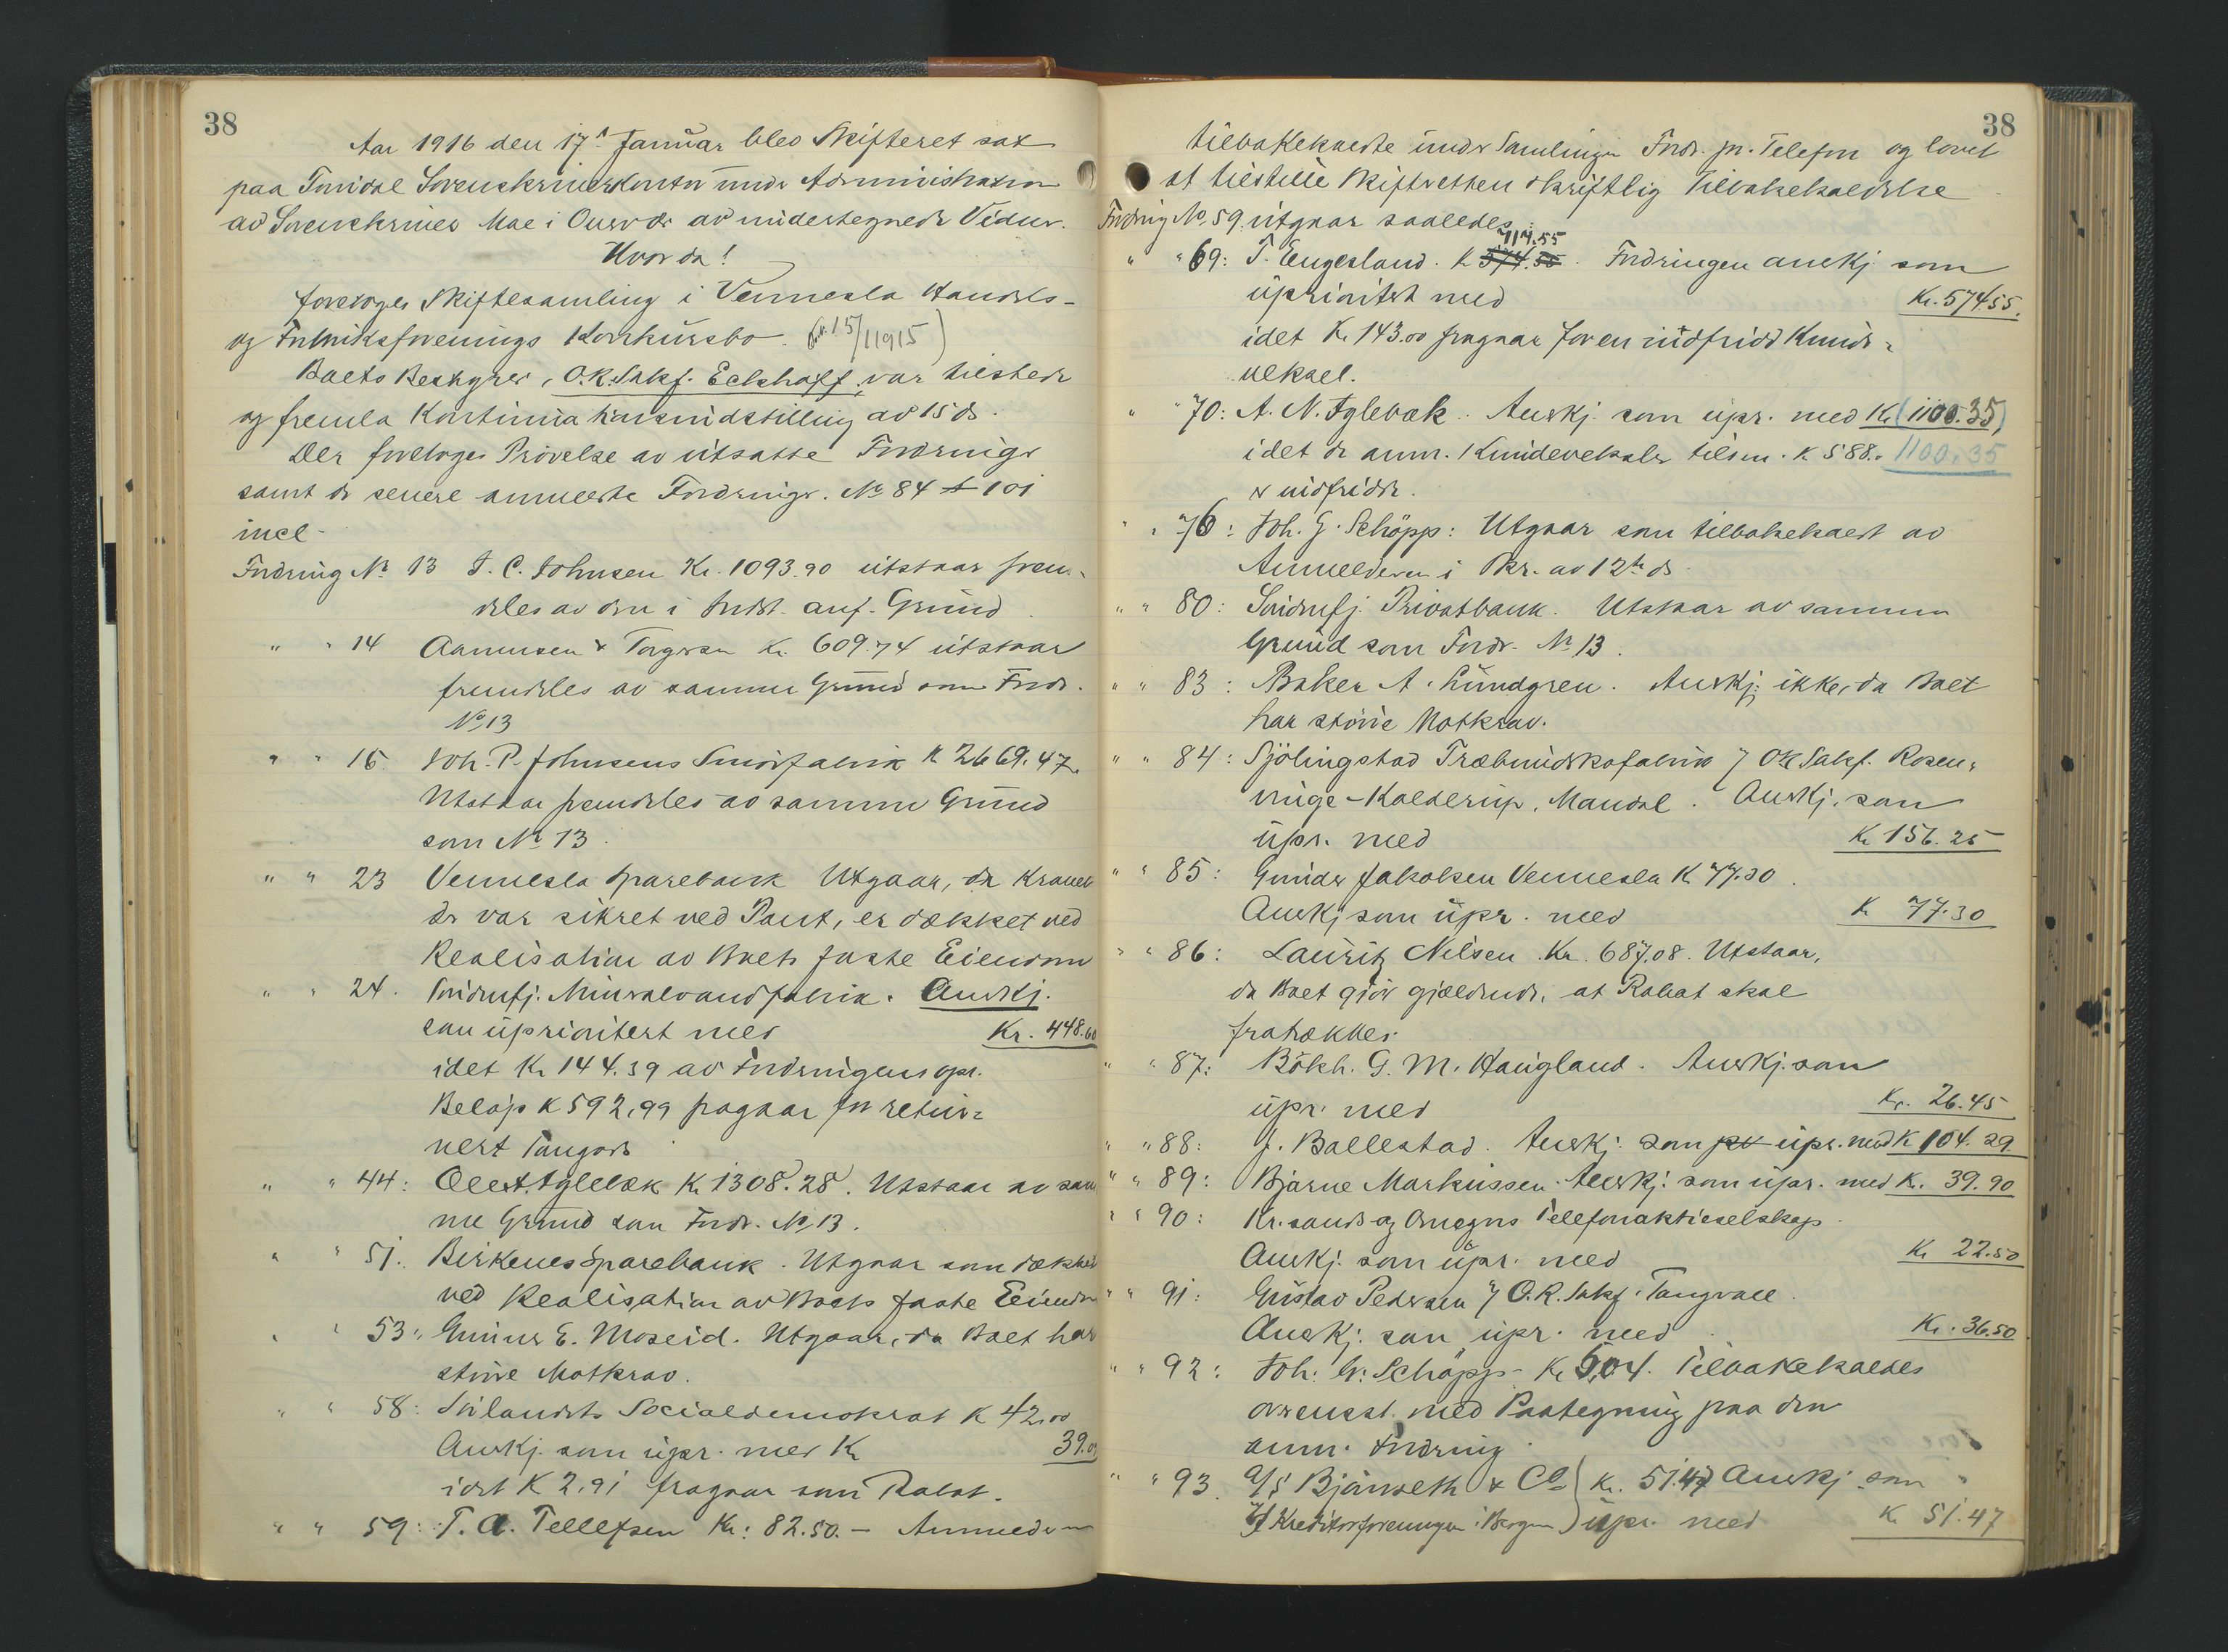 38
Aar 1916 den 17de Januar blev Skifteret sat
paa Torridal Sorenskriverkontor under Administration
av Sorenskriver Moe i Overvær av undertegnede Vidner.
Hvorda!
foretoges Skiftesamling i Vennesla Handels-
og Fabriksforenings Konkursbo. 15/11915)
Boets Bestyrer, O.R.Sakf. Eckhoff, var tilstede
og fremla Kontinuations indstilling av 15 ds.
Der foretoges Prövelse av utsatte Fordringer
samt de senere anmeldte Fordringer. No 84 t 101
incl-
Fordring No 13 J. C. Johnsen Kr. 1093.90 utstaar frem-
deles av den i Indst. anf. Grund
" " 14 Aanensen & Torgersen Kr. 609.74 utstaar
fremdeles av samme Grund som Fordr.
No 13
" " 15 Joh. P. Johnsens Smörfabrik K 2669.47.
Utstaar fremdeles av samme Grund
som No 13.
" " 23 Vennesla Sparebank Utgaar, da Kravet
der var sikret ved Pant, er dækket ved
Realisation av Boets faste Eiendom
" " 24. Christiansfj. Mineralvandfabrik. Anerkj.
som uprioritert med Kr. 448.60
idet Kr 144.39 av Fordringens opr.
Belöp K 592,99 fragaar for retur-
nert Tomgods
" " 44: Olest. Iglebæk Kr 1308.28. Utstaar av sam
me Grund som Fordr. No 13.
" " 51. Birkenes Sparebank. Utgaar som dækket
ved Realisation av Boets faste Eiendom
" " 53. Gunnar E. Moseid. Utgaar, da Boet har
större Motkrav.
" " 58: Sörlandets Socialdemokrat K 42.00
Anerkj. som upr. med Kr 39.09
idet K 2.91 fragaar som Rabat.
" " 59: T. A. Tellefsen Kr: 82.50. - Anmelderen
38
tilbakekaldte under Samlingen Fordr. pr. Telefon og lovet
at tilstille Skifteretten skriftlig Tilbakekaldelse
Fordring No 59 utgaar saaledes
" " 69: T. Engesland. K 574.55 714.55. Fordringen anerkj som
uprioritert med Kr. 574.55.
idet Kr. 143.00 fragaar for en indfridd Kunde-
veksel.
" " 70: A. N. Iglebæk. Anerkj. som upr. med Kr (1100.35)
idet de anm. Kundeveksler tilsm. K 588.- 1100.35
er indfridde.
" " 76: Joh. G. Schöpp: Utgaar som tilbakekaldt av
Anmelderen i Skr. av 12te ds.
" " 80: Privatbank. Utstaar av samme
Grund som Fordr. No 13.
" " 83: Baker A. Lundgren. Anerkj. ikke, da Boet
har större Motkrav.
" " 84: Sjölingstad Træbundskofabrik v/ OR Sakf. Rosen-
vinge-Kolderup, Mandal. Anerkj. som
upr. med Kr 156.25
" " 85: Gunder Jakobsen Vennesla K 77.30.
Anerkj som upr. med K 77.30
" " 86: Lauritz Nilsen. Kr. 687.08. Utstaar,
da Boet gjör gjældende, at Rabat skal
fratrækkes.
" " 87: Bökh. G. M. Haugland. Anerkj. som
upr. med Kr. 26.45
" " 88: J. Ballestad. Anerkj. som pr upr. med K 104.29
" " 89: Bjarne Markussen. Anerkj. som upr. med K. 39.90
" " 90: Kr.sands og Omegns Telefonaktieselskap.
Anerkj. som upr. med Kr 22.50
" " 91: Gustav Pedersen v/ O.R. Sakf. Tangvall.
Anerkj. som upr. med Kr. 36.50
" " 92: Joh. G. Schöpp - Kr 5,04. Tilbakekaldes
overensst. med Paategning paa den
anm. Fordring
" " 93. A/S Bjånseth & Co Kr. 51.47 Anerkj som
v/ Kreditorforeningen i Bergen upr. med K 51.47